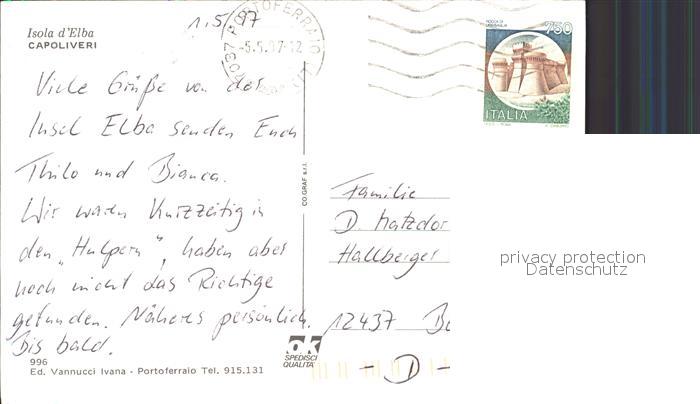 Isola d'Elba
CAPOLIVERI
1.5.97
57037 PORTOFERRAIO (LI)
-5.5.97-12
ROCCA DI
URBISAGLIA
750
ITALIA
Viele Grüße von der
Insel Elba senden Euch
Thilo und Bianca.
Wir waren kurzzeitig in
den „Hulpern“, haben aber
noch nicht das Richtige
gefunden. Näheres persönlich.
Bis bald.
CO.GRAF s.r.l.
Familie
D. Matzdor
Hallberger
12437 Be
- D -
privacy protection
Datenschutz
ok
SPEDISCI
QUALITA'
996
Ed. Vannucci Ivana - Portoferraio Tel. 915.131